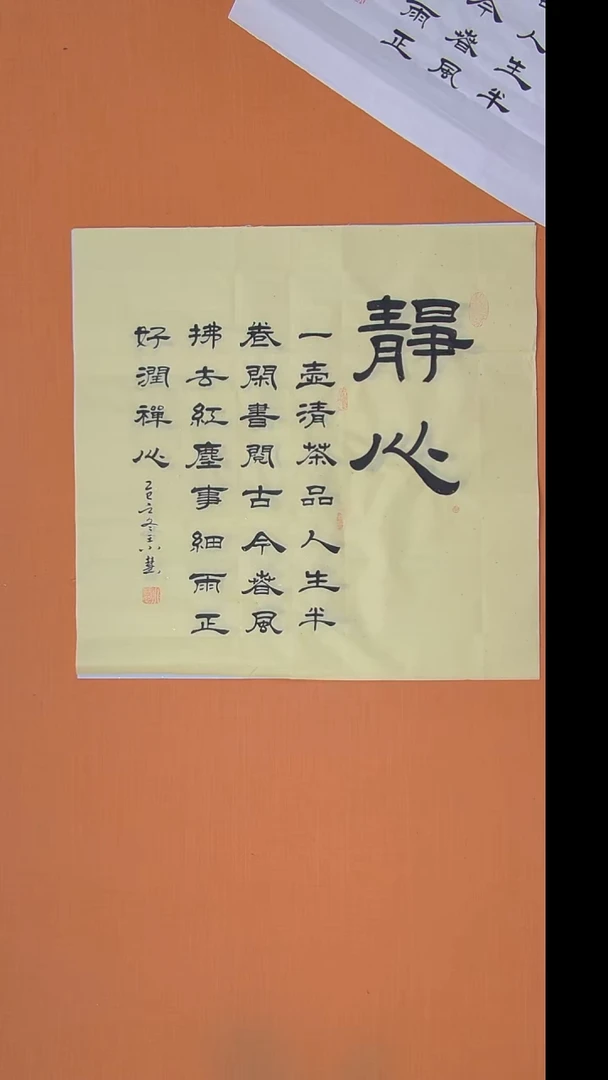 靜心
一壺清茶品人生半
卷閑書閱古今春風
拂去紅塵事細雨正
好潤禪心
乙巳立冬
今
人生半
春風
雨正